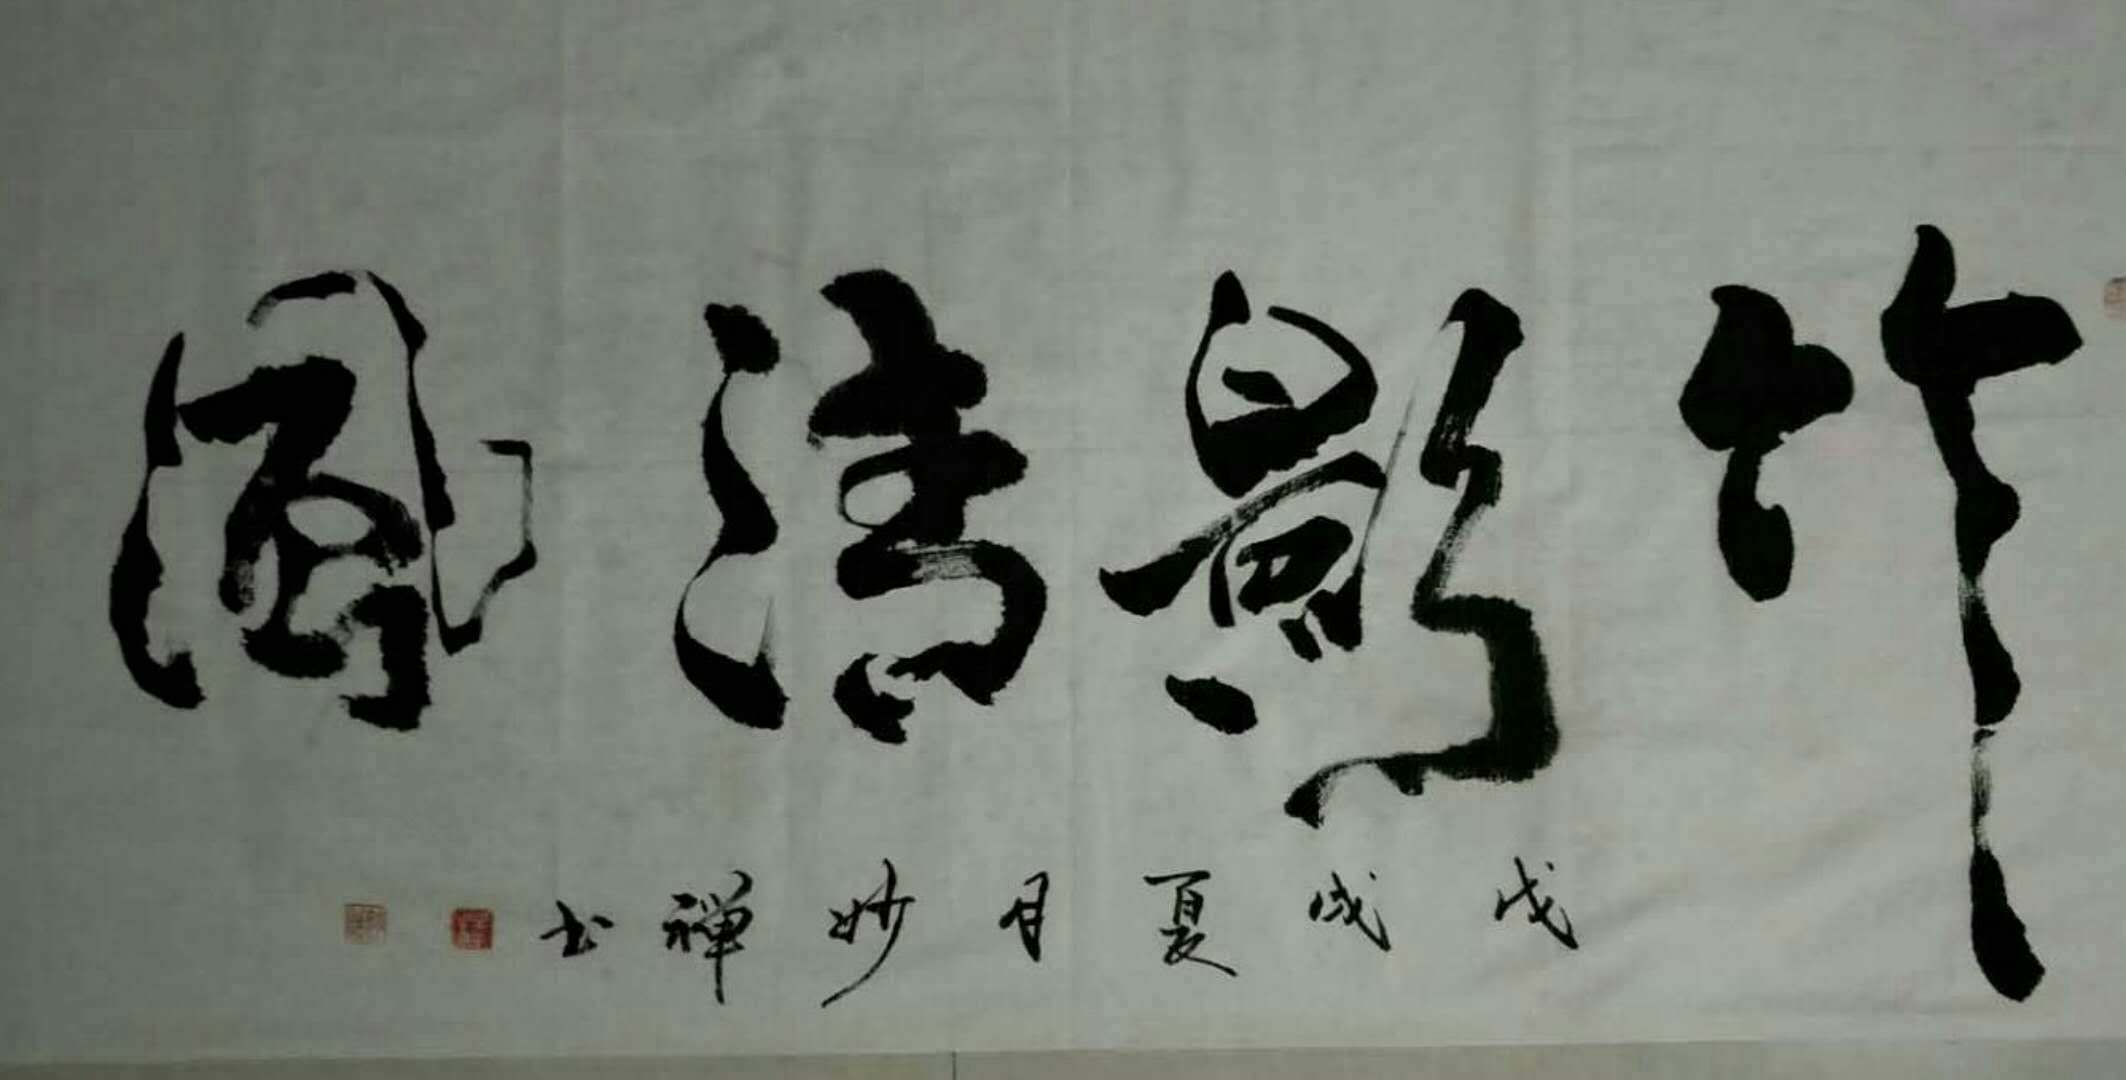 竹影清風
戊戌夏月妙禅书